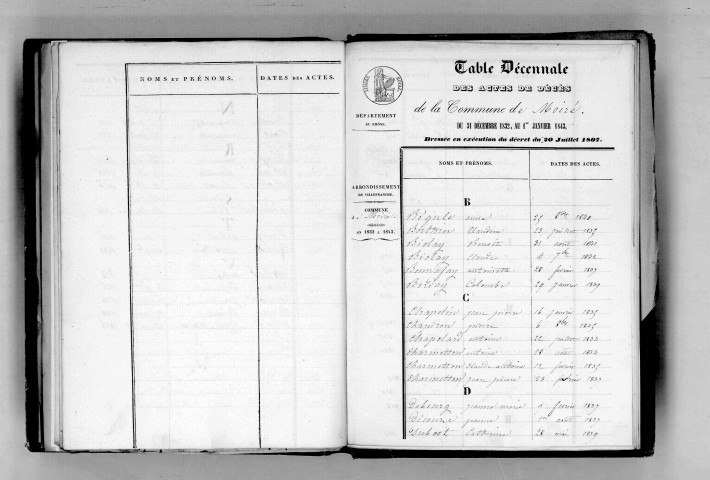 NOMS ET PRÉNOMS. DATES DES ACTES.
DÉPARTEMENT
DU RHÔNE.
ARRONDISSEMENT
DE VILLEFRANCHE.
COMMUNE
de Moiré
1833 à 1843.
Table Décennale
DES ACTES DE DÉCÈS
de la Commune de Moiré.
DU 31 DÉCEMBRE 1832, AU 1er JANVIER 1843.
Dressée en exécution du décret du 20 Juillet 1807.
NOMS ET PRÉNOMS. DATES DES ACTES.
B
Bégule 27 8bre 1840
Berthon Claudine 23 juillet 1835
Biolay Benoit 31 août
Biolay 4 7bre
antoinette 28 février 1837
Colombe 29 janvier 1839
C
Chapelin jean pierre 16 janvier 1835
pierre 6 8bre 1835
Chapolard antoine 22 juillet
Charmetton antoine 28 août
Charmetton Claude antoine 12 février 1835
Charmetton jean pierre 23 février 1837
D
Debourg jeanne marie février 1837
août 1837
Catherine 28 mai 1839